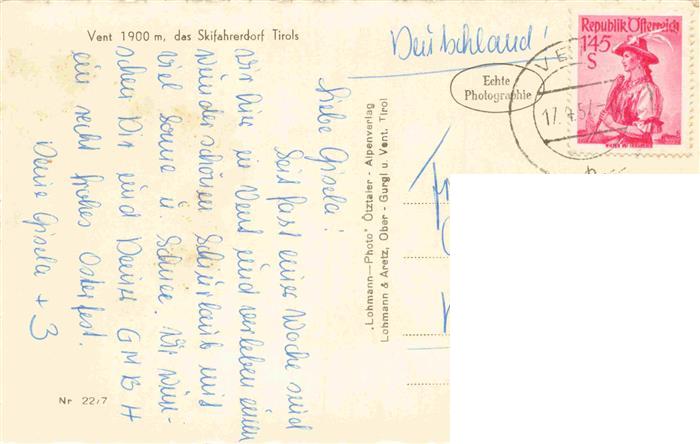 Vent 1900 m, das Skifahrerdorf Tirols
Liebe Gisela!
Seit fast einer Woche sind
wir hier in Vent und verleben einen
wunderschönen Schiurlaub mit
viel Sonne u. Schnee. Wir wün-
schen Dir und Deiner GMBH
ein recht frohes Osterfest.
Deine Gisela + 3
Nr 22/7
"Lohmann—Photo" Ötztaler - Alpenverlag
Lohmann & Aretz, Ober - Gurgl u. Vent. Tirol
Deutschland!
Echte
Photographie
Republik Österreich
1'45
S
VE
17. 4. 5